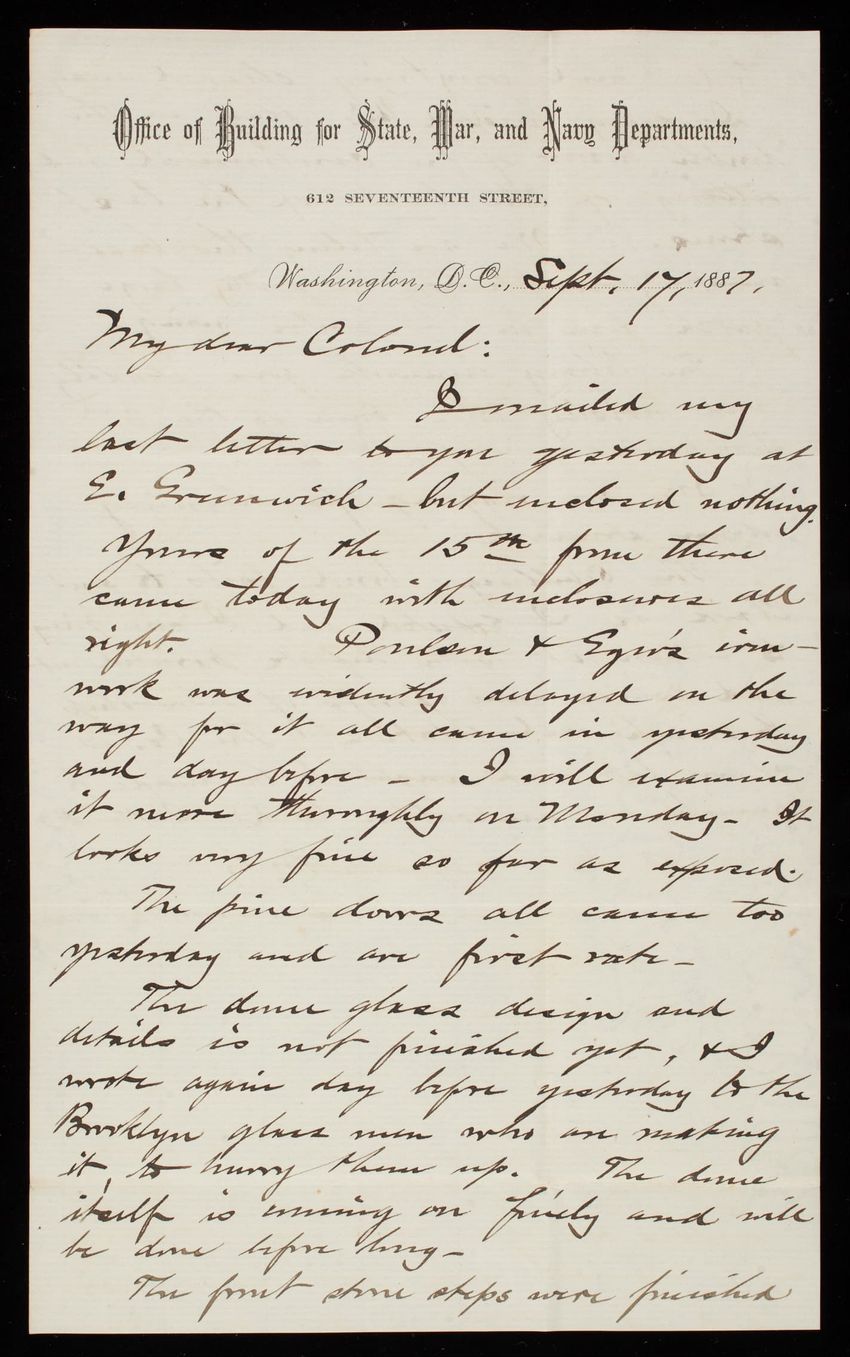 Office of Building for State, War, and Navy Departments,
612 SEVENTEENTH STREET,
Washington, D. C., Sept. 17, 1887.
My dear Colonel:
I mailed my
last letter to you yesterday at
E. Greenwich – but inclosed nothing.
Yours of the 15th from there
came today with inclosures all
right. Poulsen & Eger's iron-
work was evidently delayed on the
way for it all came in yesterday
and day before – I will examine
it more thoroughly on Monday – It
looks very fine so far as exposed.
The pine doors all came too
yesterday and are first rate –
The dome glass design and
details is not finished yet, & I
wrote again day before yesterday to the
Brooklyn glass men who are making
it, to hurry them up. The dome
itself is coming on finely and will
be done before long –
The front stone steps were finished